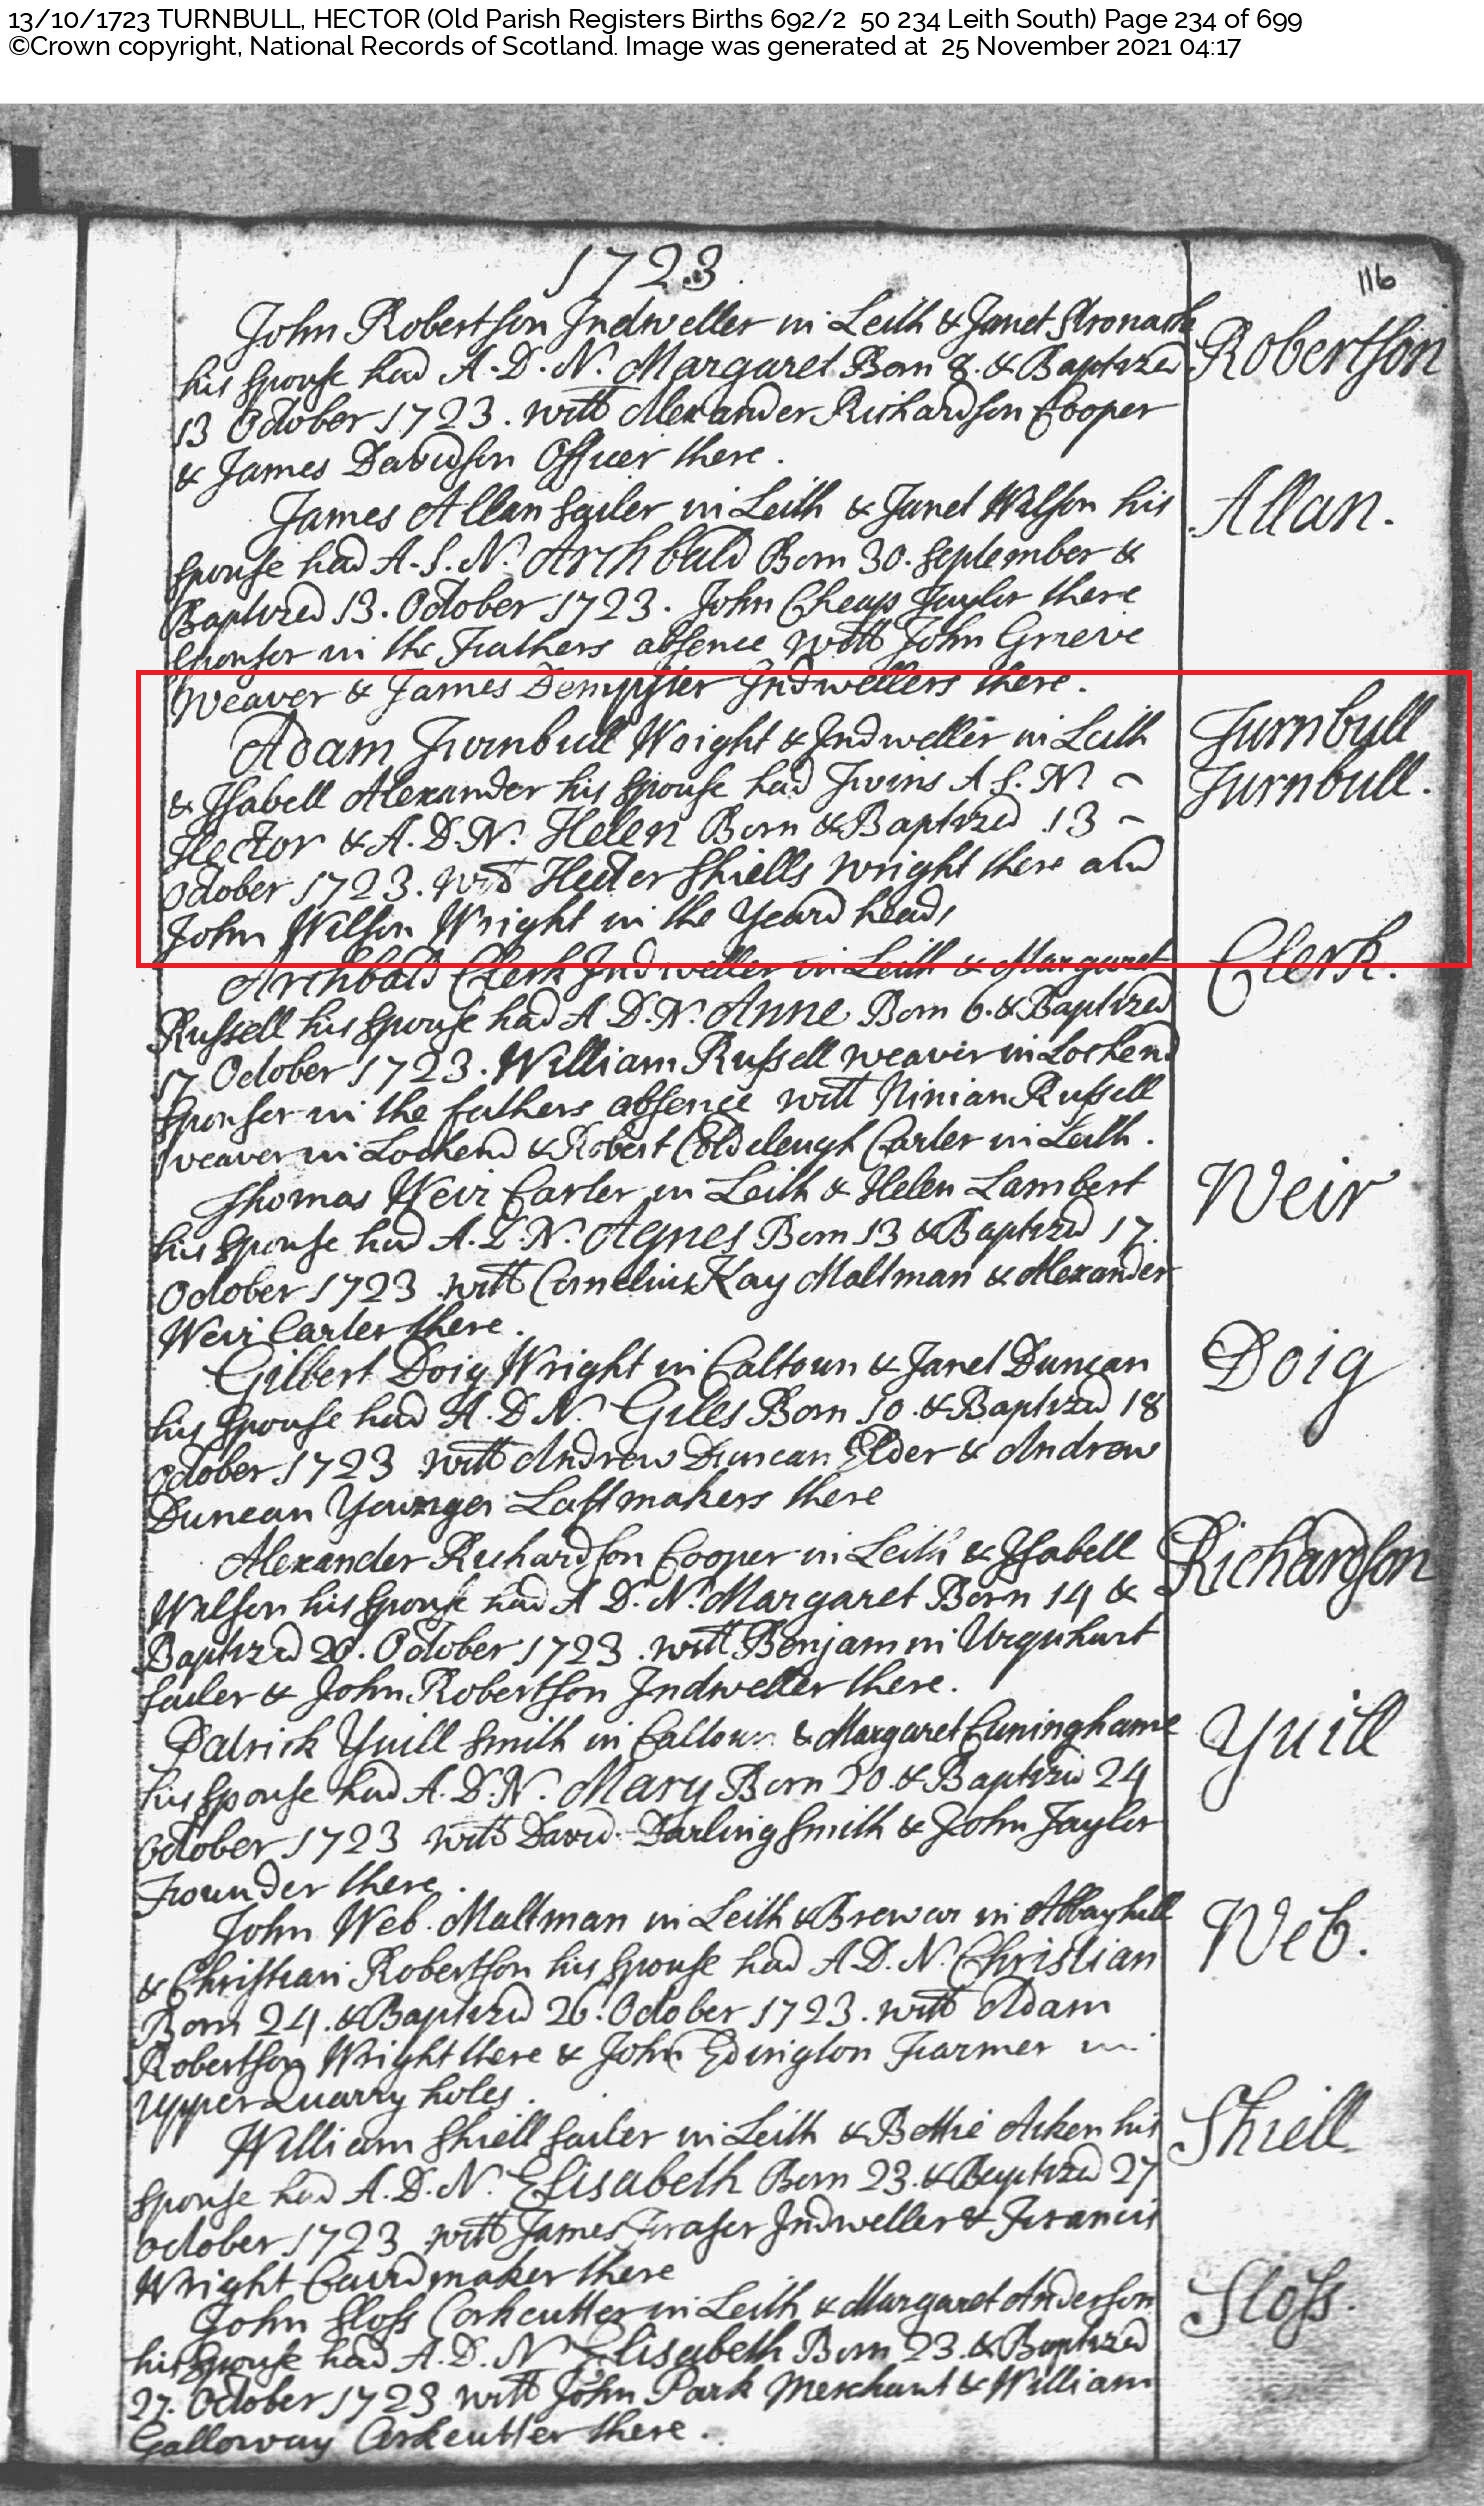 13/10/1723 TURNBULL, HECTOR (Old Parish Registers Births 692/2 50 234 Leith South) Page 234 of 699
©Crown copyright, National Records of Scotland. Image was generated at 25 November 2021 04:17
1723
116
John Robertson Indweller in Leith & Janet Stronach
Robertson
his Spouse had A. D. N. Margaret Born 8. & Baptized
13 October 1723. witt Alexander Richardson Cooper
& James Davidson Officer there.
James Allan Sailer in Leith & Janet Wilson his
Allan.
Spouse had A. S. N. Archbald Born 30. September &
Baptized 13. October 1723. John Cheap Taylor there
Sponser in the Fathers absence witt John Grieve
Weaver & James Dempster Indwellers there.
Adam Turnbull Wright & Indweller in Leith
Turnbull
& Isabell Alexander his Spouse had Twins A S. N.
Turnbull.
Hector & A. D. N. Helen Born & Baptized 13
October 1723. witt Hector Shiells Wright there and
John Wilson Wright in the Yeard heads
Archbald Clerk Indweller in Leith & Margaret
Clerk.
Russell his Spouse had A D. N. Anne Born 6. & Baptized
17 October 1723. William Russell weaver in Lochend
Sponser in the fathers absence witt Ninian Russell
weaver in Lochend & Robert Coldcleugh Carter in Leith.
Thomas Weir Carter in Leith & Helen Lambert
Weir
his Spouse had A. D. N. Agnes Born 13 & Baptized 17.
October 1723 witt Cornelius Kay Maltman & Alexander
Weir Carter there.
Gilbert Doig Wright in Caltoun & Janet Duncan
Doig
his Spouse had A. D N. Giles Born 10. & Baptized 18
October 1723 witt Andrew Duncan Elder & Andrew
Duncan Younger Lastmakers there
Alexander Richardson Cooper in Leith & Isabell
Richardson
Wilson his Spouse had A D. N. Margaret Born 14 &
Baptized 20. October 1723. witt Benjamin Urquhart
Sailer & John Robertson Indweller there.
Patrick Yuill Smith in Caltoun & Margaret Cuninghame
Yuill
his Spouse had A. D. N. Mary Born 20. & Baptized 24
October 1723 witt David Darling Smith & John Taylor
Founder there.
John Web. Maltman in Leith & Brewar in Abbayhill
Web.
& Christian Robertson his Spouse had A D. N. Christian
Born 24. & Baptized 26. October 1723. witt Adam
Robertson Wright there & John Edington Farmer in
Upper Quarry holes.
William Shiell Sailer in Leith & Bettie Aiken his
Shiell
Spouse had A. D. N. Elisabeth Born 23. & Baptized 27
October 1723 witt James Fraser Indweller & Francis
Wright Cairdmaker there
John Sloss Corkcutter in Leith & Margaret Anderson
Sloss.
his Spouse had A. D. N Elisabeth Born 23. & Baptized
27. October 1723 witt John Park Merchant & William
Galloway Corkcutter there.